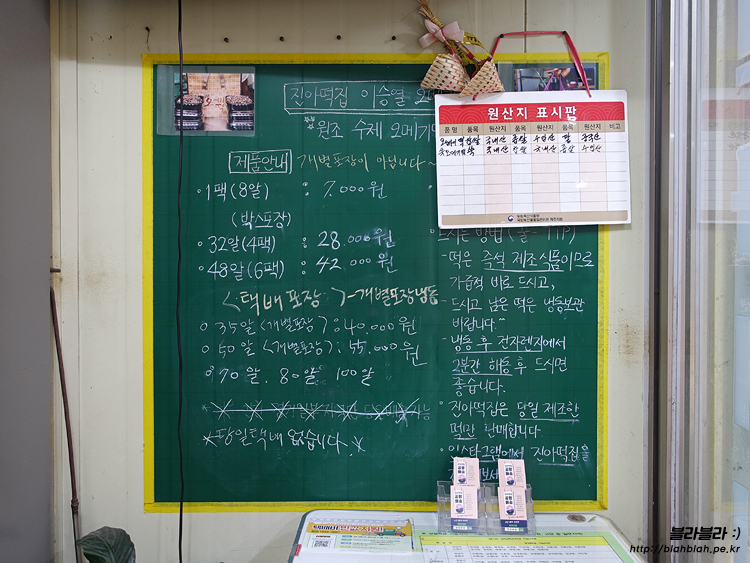 진아떡집 이승열
원조 수제 오메기
제품안내 개별포장이 아닙니다~
·1팩(8알) : 7.000원
(박스포장)
·32알(4팩) : 28.000원
·48알(6팩) : 42.000원
<택배포장>-개별포장냉동
○ 35알 <개별포장>: 40.000원
○ 50알 <개별포장>: 55.000원
○ 70알. 80알 100알
*당일택배 없습니다.*
원산지 표시판
품명 품목 원산지 품목 원산지 품목 원산지 비고
국내산
국내산
드시는 방법
- 떡은 즉석 제조식품이므로
가급적 바로 드시고,
- 드시고 남은 떡은 냉동보관
바랍니다.^^
- 냉동 후 전자렌지에서
2분간 해동 후 드시면
좋습니다.
· 진아떡집은 당일 제조한
떡만 판매합니다
· 인스타그램에서 진아떡집을
블라블라 :)
http://blahblah.pe.kr